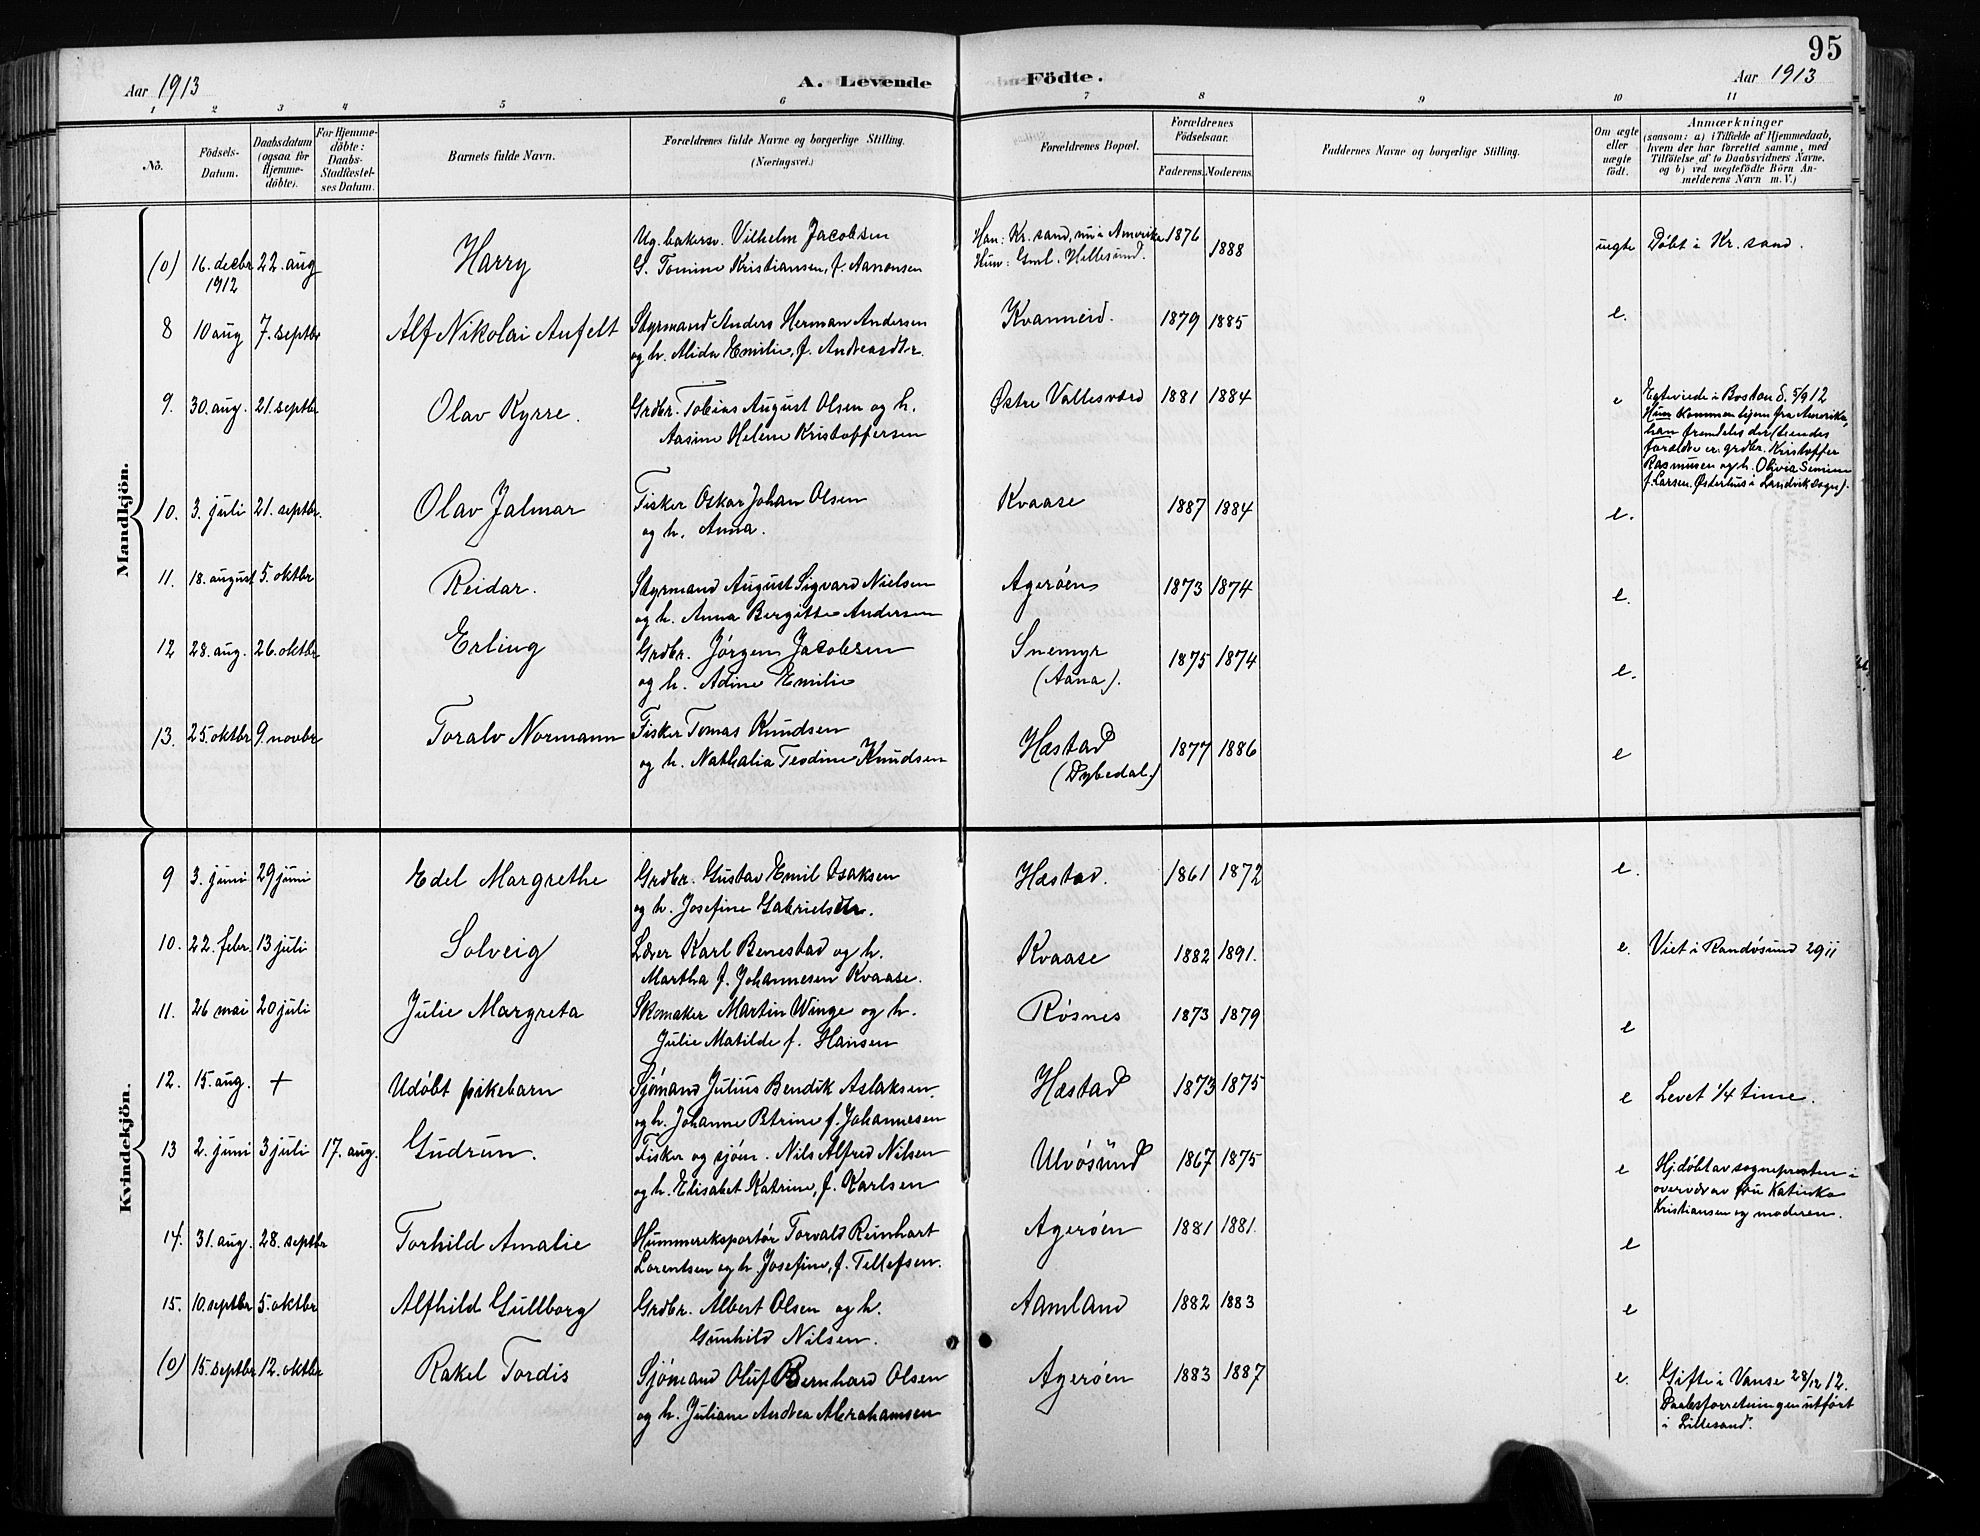 95
Aar 1913 A. Levende Födte. Aar 1913
1 2 3 4 5 6 7 8 9 10 11
Nö. Födsels-Datum. Daabsdatum (ogsaa for Hjemmedöbte). For Hjemmedöbte: Daabs-Stadfæstelses Datum. Barnets fulde Navn. Forældrenes fulde Navne og borgerlige Stilling. (Næringsvei.) Forældrenes Bopæl. Forældrenes Födselsaar. Faderens. Moderens. Faddernes Navne og borgerlige Stilling. Om ægte eller uægte födt. Anmærkninger (saasom: a) i Tilfælde af Hjemmedaab, hvem der har forrettet samme, med Tilföielse af to Daabsvidners Navne. og b) ved uægtefödte Börn Anmelderens Navn m. V.)
Mandkjön.
(0) 16. decbr 1912 22. aug Harry Ug. bakersv. Vilhelm Jacobsen Han: Kr.sand, nu i Amerika 1876 1888 uegte Døbt i Kr.sand.
G. Tomine Kristiansen, f. Aanonsen Hun: Gml. Hellesund.
8 10 aug 7. septbr Alf Nikolai Anfelt Styrmand Anders Herman Andersen Kvanneid. 1879 1885 e.
og h. Alida Emilie, f. Andreasdtr.
9. 30. aug. 21. septbr Olav Kyrre. Grdbr. Tobias August Olsen og h. Østre Vallesværd 1881 1884 e Egteviede i Boston d. 5/9 12
Aasine Helene Kristoffersen Hun kommen hjem fra Amerika,
han fremdeles der (hendes
forældre er: grdbr. Kristoffer
Rasmusen og h. Olivia Semine
f. Larsen. Østerhus i Landvik sogn).
10. 3. juli 21. septbr. Olav Jalmar Fisker Oskar Johan Olsen Kvaase 1887 1884 e.
og h. Anna.
11. 18. august 5. oktbr Reidar. Styrmand August Sigvard Nielsen Agerøen 1873 1874 e.
og h. Anna Bergitte Andersen
12 28. aug. 26. oktbr Erling Grdbr. Jørgen Jacobsen Snemyr 1875 1874 e.
og h. Adine Emilie (Aana).
13. 25. oktbr 9. novbr Toralv Normann Fisker Tomas Knudsen Hæstad 1877 1886 e
og h. Nathalia Teodine Knudsen (Dybedal.)
Kvindekjön.
9 3. juni 29 juni Edel Margrethe Grdbr. Gustav Emil Isaksen Hæstad. 1861 1872 e.
og h. Josefine Gabrielsdtr.
10. 22. febr. 13 juli Solveig Lærer Karl Benestad og h. Kvaase 1882 1891. e. Viet i Randøsund 29 11
Martha f. Johannesen Kvaase.
11. 26 mai 20 juli Julie Margreta Skomaker Martin Winge og h. Røsnes 1873 1879 e
Julie Matilde f. Hansen
12. 15. aug. + Udøbt pikebarn Sjømand Julius Bendik Aslaksen Hæstad 1873 1875 e Levet 1/4 time.
og h. Johanne Petrine f. Johannesen
13 2. juni 3 juli 17. aug. Gudrun. Fisker og sjøm. Nils Alfred Nilsen Ulvøsund 1867 1875 e Hj.døbt av sognepresten i
og h. Elisabet Katrine, f. Karlsen overvær av fru Katinka
Kristiansen og moderen.
14. 31. aug. 28. septbr Torhild Amalie Hummereksportør Torvald Reinhart Agerøen 1881 1881. e
Lorentsen og h. Josefine, f. Tellefsen.
15. 10. septbr 5. oktbr Alfhild Gullborg Grdbr. Albert Olsen og h. Aamland 1882 1883 e
Gunhild Nilsen.
(0) 15. septbr 12. oktbr Rakel Tordis Sjømand Oluf Bernhard Olsen Agerøen 1883 1887 e. Gifte i Vanse 28/12 12.
og h. Juliane Andrea Abrahamsen Daabsforretningen utført
i Lillesand.